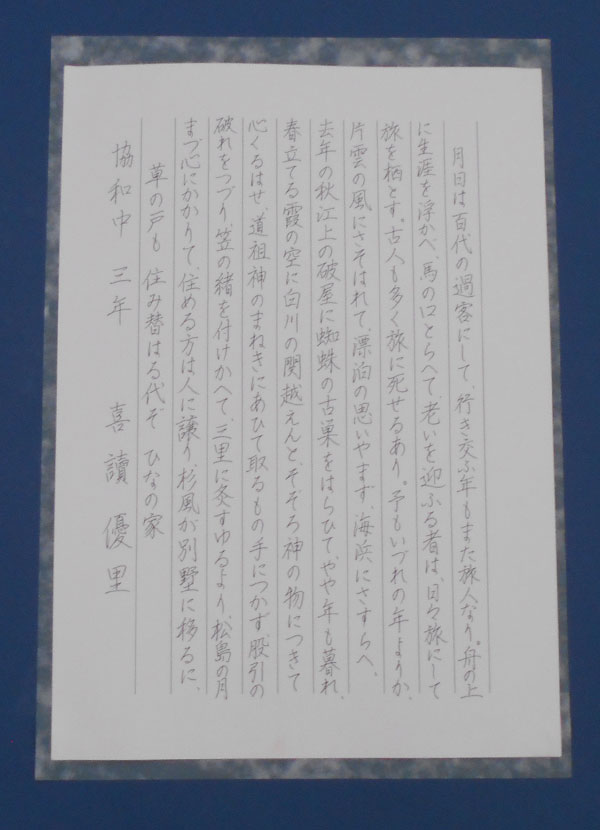 月日は百代の過客にして、行き交ふ年もまた旅人なり。舟の上
に生涯を浮かべ、馬の口とらへて老いを迎ふる者は、日々旅にして
旅を栖とす。古人も多く旅に死せるあり。予もいづれの年よりか、
片雲の風にさそはれて、漂泊の思いやまず、海浜にさすらへ、
去年の秋江上の破屋に蜘蛛の古巣をはらひて、やや年も暮れ、
春立てる霞の空に白川の関越えんと、そぞろ神の物につきて
心くるはせ、道祖神のまねきにあひて取るもの手につかず、股引の
破れをつづり、笠の緒を付けかへて、三里に灸すゆるより、松島の月
まづ心にかかりて、住める方は人に譲り、杉風が別墅に移るに、
草の戸も 住み替はる代ぞ ひなの家
協和中 三年 喜讀優里